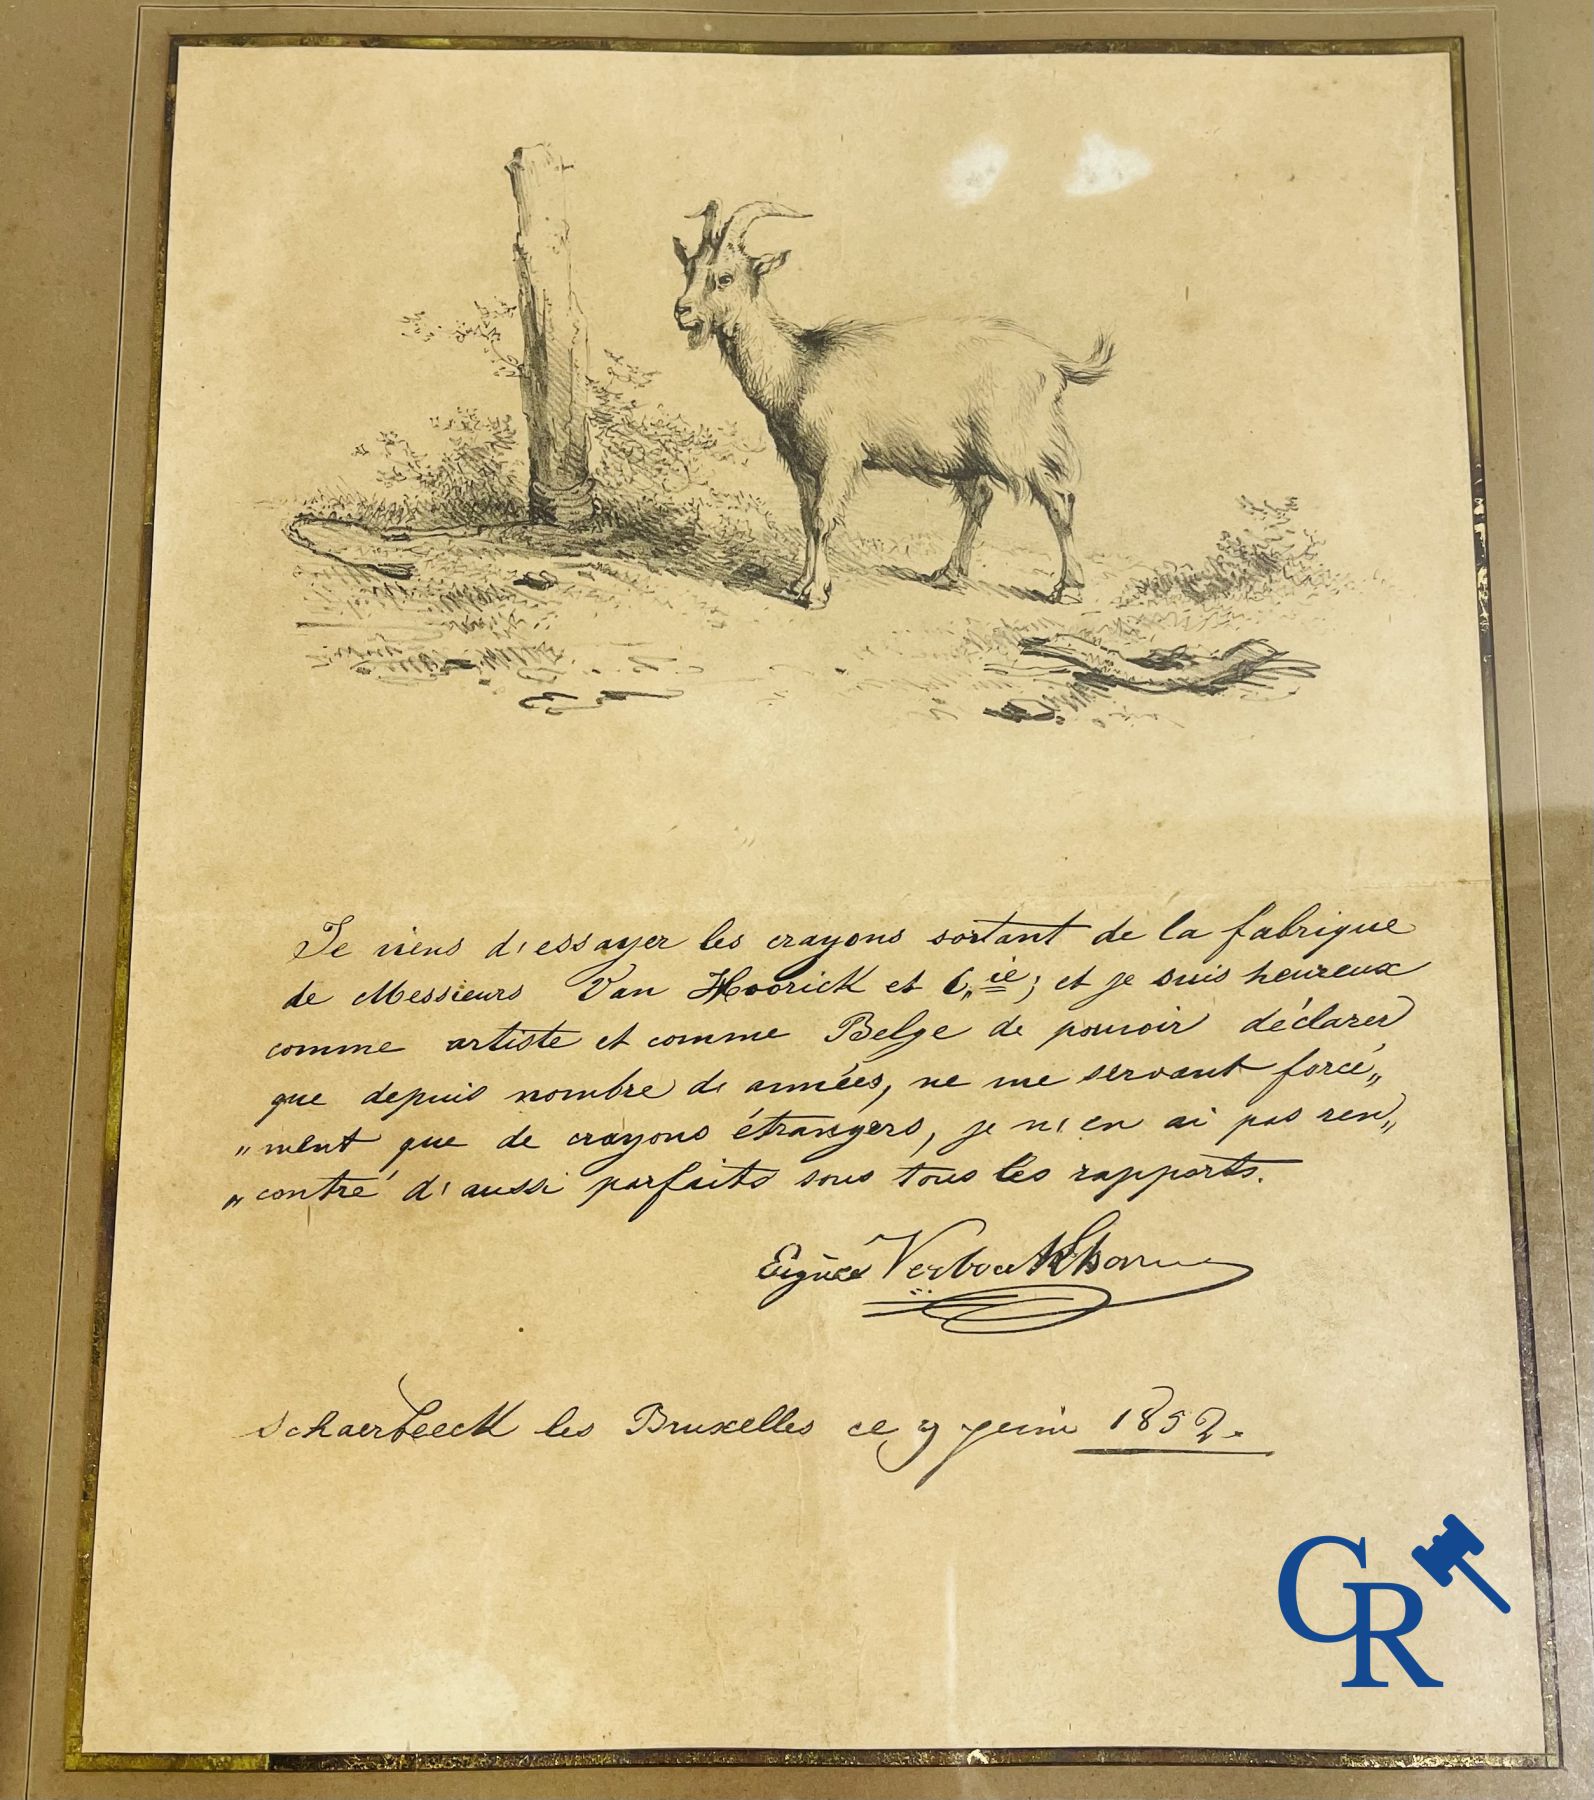 Je viens d'essayer les crayons sortant de la fabrique
de Messieurs Van Hoorick et C,,ie; et je suis heureux
comme artiste et comme Belge de pouvoir déclarer
que depuis nombre d'années, ne me servant forcé,,
,,ment que de crayons étrangers, je n'en ai pas ren,,
,,contré d'aussi parfaits sous tous les rapports.
Eugène Verboeckhoven
Schaerbeeck les Bruxelles ce 9 juin 1852.
CR